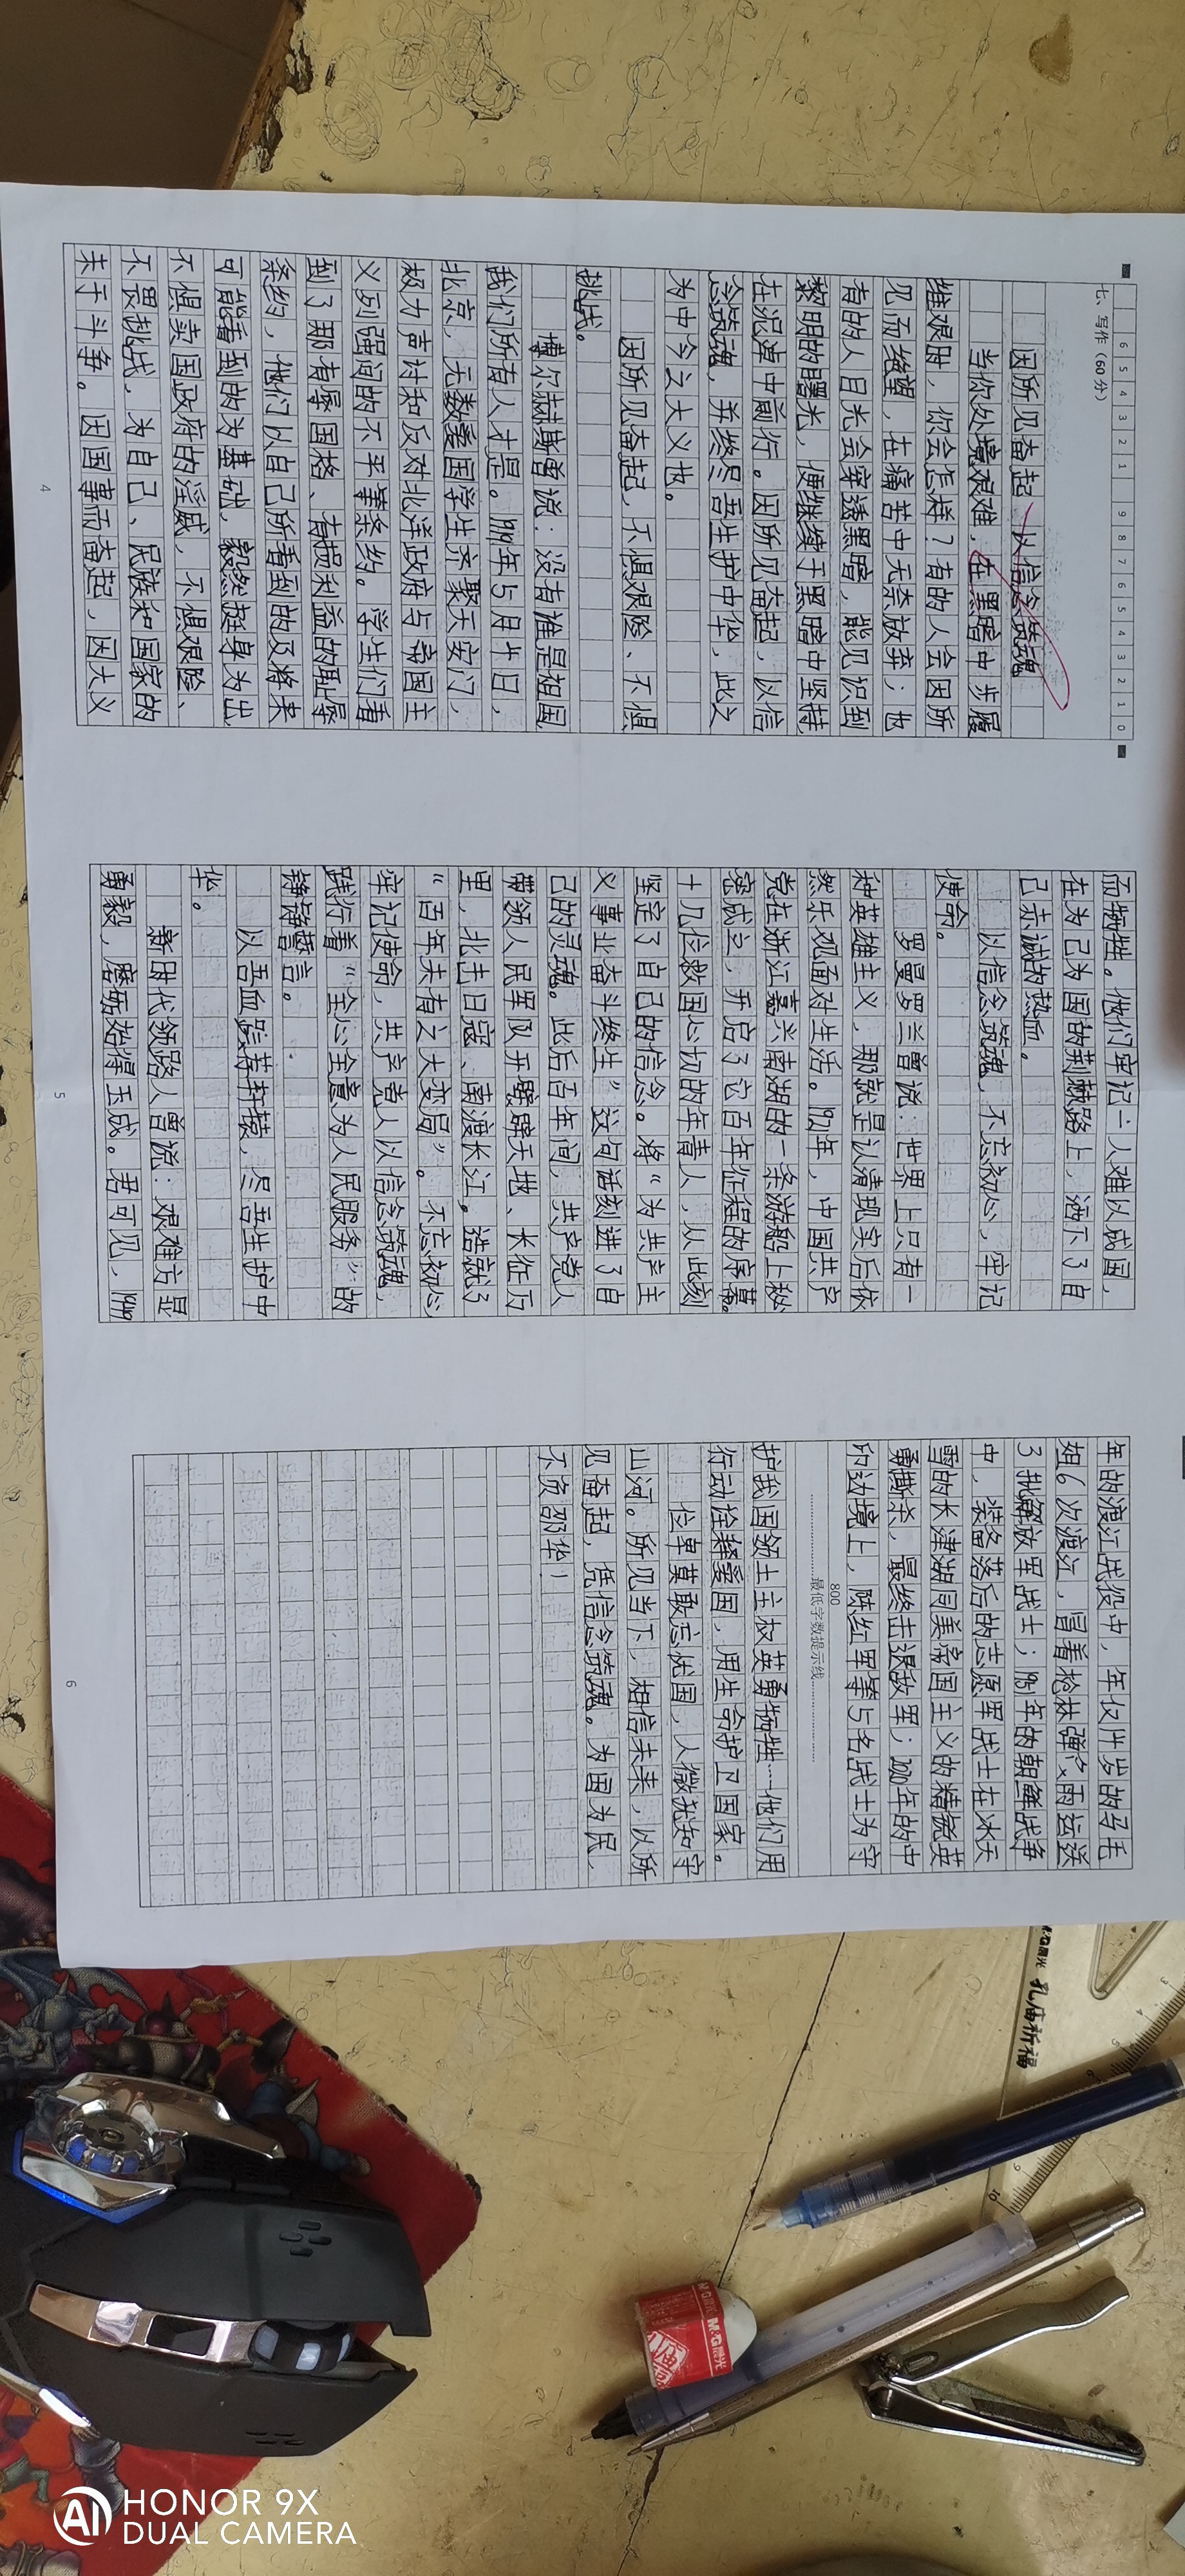 6 5 4 3 2 1 9 8 7 6 5 4 3 2 1 0
七、写作（60分）
因所见奋起 以信念筑魂
当你处境艰难，在黑暗中步履
维艰时，你会怎样？有的人会因所
见而绝望，在痛苦中无奈放弃；也
有的人目光会穿透黑暗，能见识到
黎明的曙光，便继续于黑暗中坚持
在泥淖中前行。因所见奋起，以信
念筑魂，并终尽吾生护中华，此之
为中今之大义也。
因所见奋起，不惧艰险、不惧
挑战。
博尔赫斯曾说：没有谁是祖国，
我们所有人才是。1919年5月4日，
北京，无数爱国学生齐聚天安门，
极力声讨和反对北洋政府与帝国主
义列强间的不平等条约。学生们看
到了那有辱国格、有损利益的耻辱
条约，他们以自己所看到的及将来
可能看到的为基础，毅然挺身为出
不惧卖国政府的淫威，不惧艰险、
不畏挑战，为自己、民族和国家的
未于斗争。因国事而奋起，因大义
4
而牺牲。他们牢记一人难以成国，
在为己为国的荆棘路上，洒下了自
己赤诚的热血。
以信念筑魂，不忘初心，牢记
使命。
罗曼罗兰曾说：世界上只有一
种英雄主义，那就是认清现实后依
然乐观面对生活。1921年，中国共产
党在浙江嘉兴南湖的一条游船上秘
密成立，开启了它百年征程的序幕。
十几位救国心切的年青人，从此刻
坚定了自己的信念。将“为共产主
义事业奋斗终生”这句话刻进了自
己的灵魂。此后百年间，共产党人
带领人民军队开天辟地、长征万
里，北击日寇、南渡长江。造就了
“百年未有之大变局”。不忘初心
牢记使命，共产党人以信念筑魂，
践行着“全心全意为人民服务”的
铮铮誓言。
以吾血荐轩辕，尽吾生护中
华。
新时代领路人曾说：艰难方显
勇毅，磨砺始得玉成。君可见，1949
5
年的渡江战役中，年仅14岁的马毛
姐6次渡江，冒着枪林弹雨运送
3批解放军战士；1951年的朝鲜战争
中，装备落后的志愿军战士在冰天
雪的长津湖同美帝国主义的精锐英
勇撕杀，最终击退敌军；2020年的中
印边境上，陈红军等5名战士为守
800
最低字数提示线
护我国领土主权英勇牺牲……他们用
行动诠释爱国，用生命护卫国家。
位卑莫敢忘忧国，人微犹知守
山河。所见当下，相信未来，以所
见奋起，凭信念筑魂。为国为民，
不负韶华！
6
孔庙祈福
M&G晨光
HONOR 9X
AI DUAL CAMERA